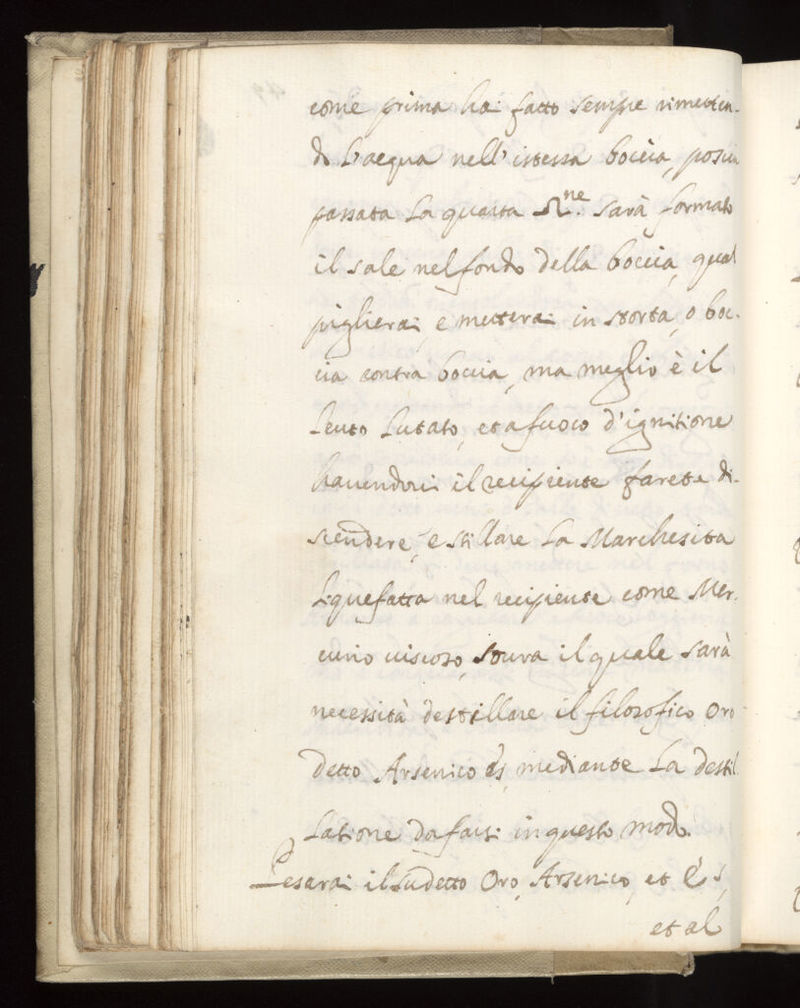 come prima hai fatto sempre rimetten-
do l'acqua nell'istessa boccia, poscia
passata la quarta ♎ne. sarà formato
il sale nel fondo della boccia, qual
piglierai, e metterai in storta, o boc-
cia contra boccia, ma meglio è il
leuto lutato, et a fuoco d'ignitione
havendovi il recipiente farete di-
scendere, e stillare la Marchesita
liquefatta nel recipiente come Mer-
curio viscoso, sovra il quale sarà
necessità destillare il filosofico oro
detto Arsenico mediante la destil-
latione da farsi in questo modo.
Pesarai il sudetto Oro, Arsenico, et
et al